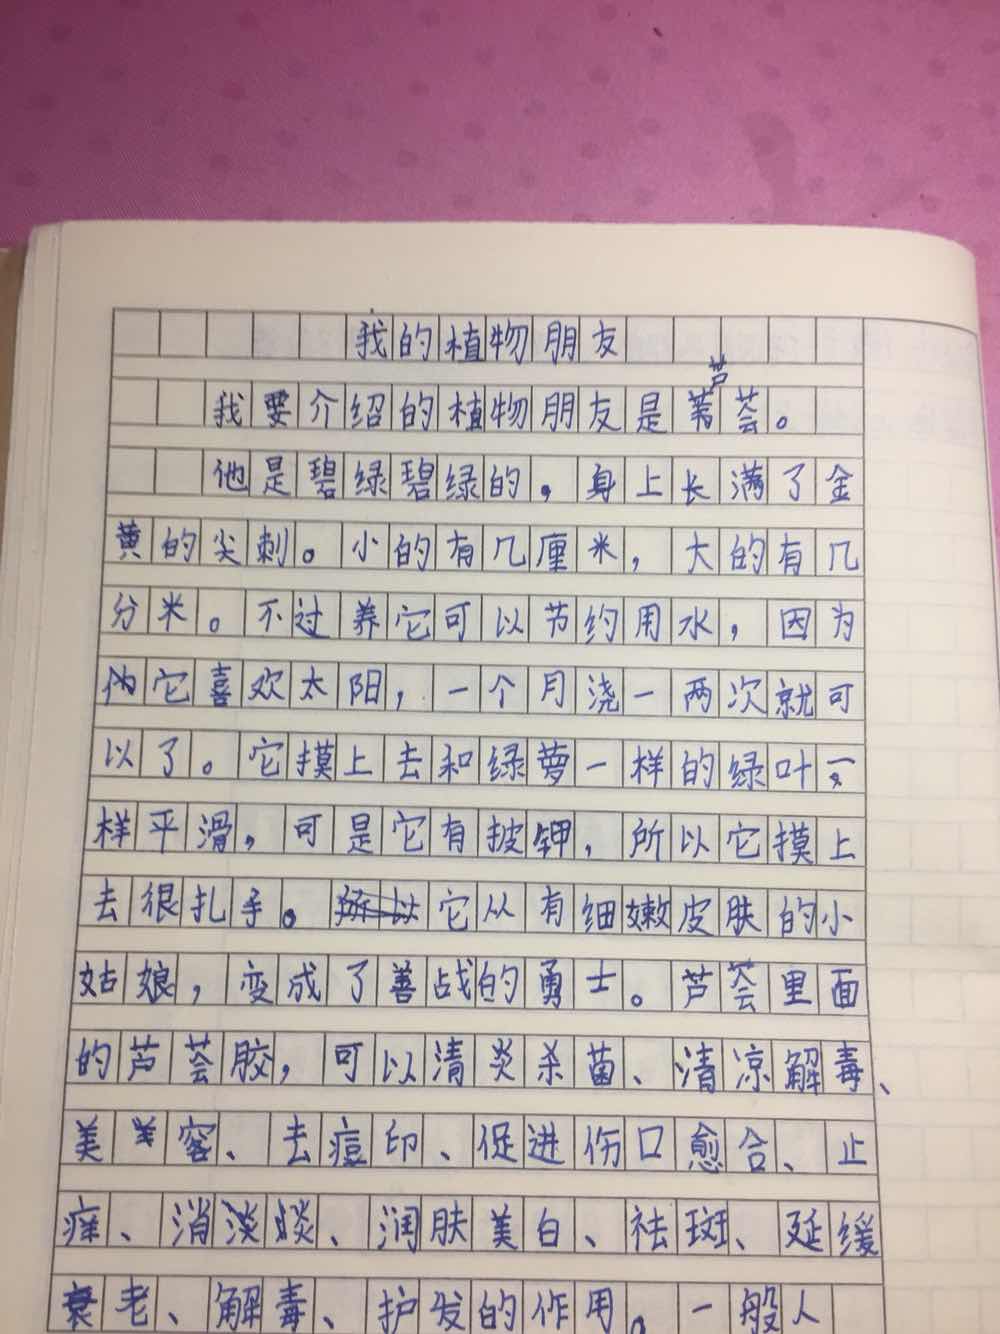 我的植物朋友
我要介绍的植物朋友是芦荟。
他是碧绿碧绿的，身上长满了金
黄的尖刺。小的有几厘米，大的有几
分米。不过养它可以节约用水，因为
它喜欢太阳，一个月浇一两次就可
以了。它摸上去和绿萝一样的绿叶一
样平滑，可是它有披钾，所以它摸上
去很扎手。它从有细嫩皮肤的小
姑娘，变成了善战的勇士。芦荟里面
的芦荟胶，可以清炎杀菌、清凉解毒、
美容、去痘印、促进伤口愈合、止
痒、消淡、润肤美白、祛斑、延缓
衰老、解毒、护发的作用。一般人